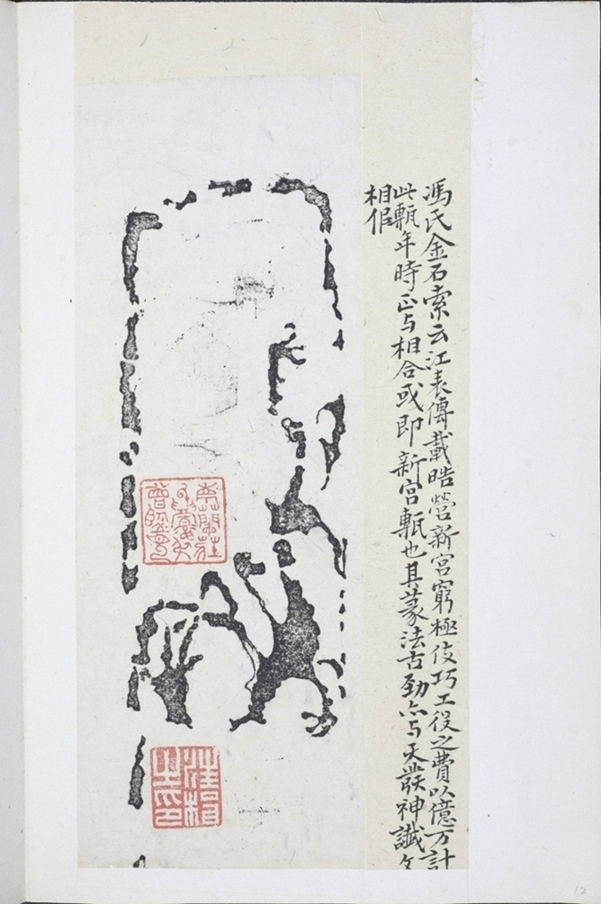 馮氏金石索云江表傳載晧營新宮窮極伎巧工役之費以億万計
此甎年時正与相合或即新宮甎也其篆法古勁亦与天發神讖文
相佀
12